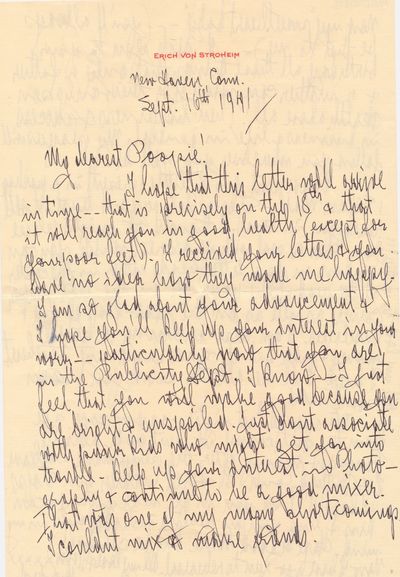 ERICH VON STROHEIM
New Haven, Conn.
Sept. 16th 1941
My dearest Poopie!
I hope that this letter will arrive
in time -- that is precisely on the 18th & that
it will reach you in good health (except for
your poor feet). I received your letters & you
have no idea how they made me happy.
I am so glad about your advancement &
I hope you'll keep up your interest in your
work -- particularily now that you are
in the Publicity Dept. I know -- I just
feel that you will make good because you
are bright & unspoiled. Just don't associate
with punk kids who might get you into
trouble - Keep up your interest in photo-
graphy & continue to be a good mixer.
That was one of my many shortcomings
I couldnt mix & make friends.